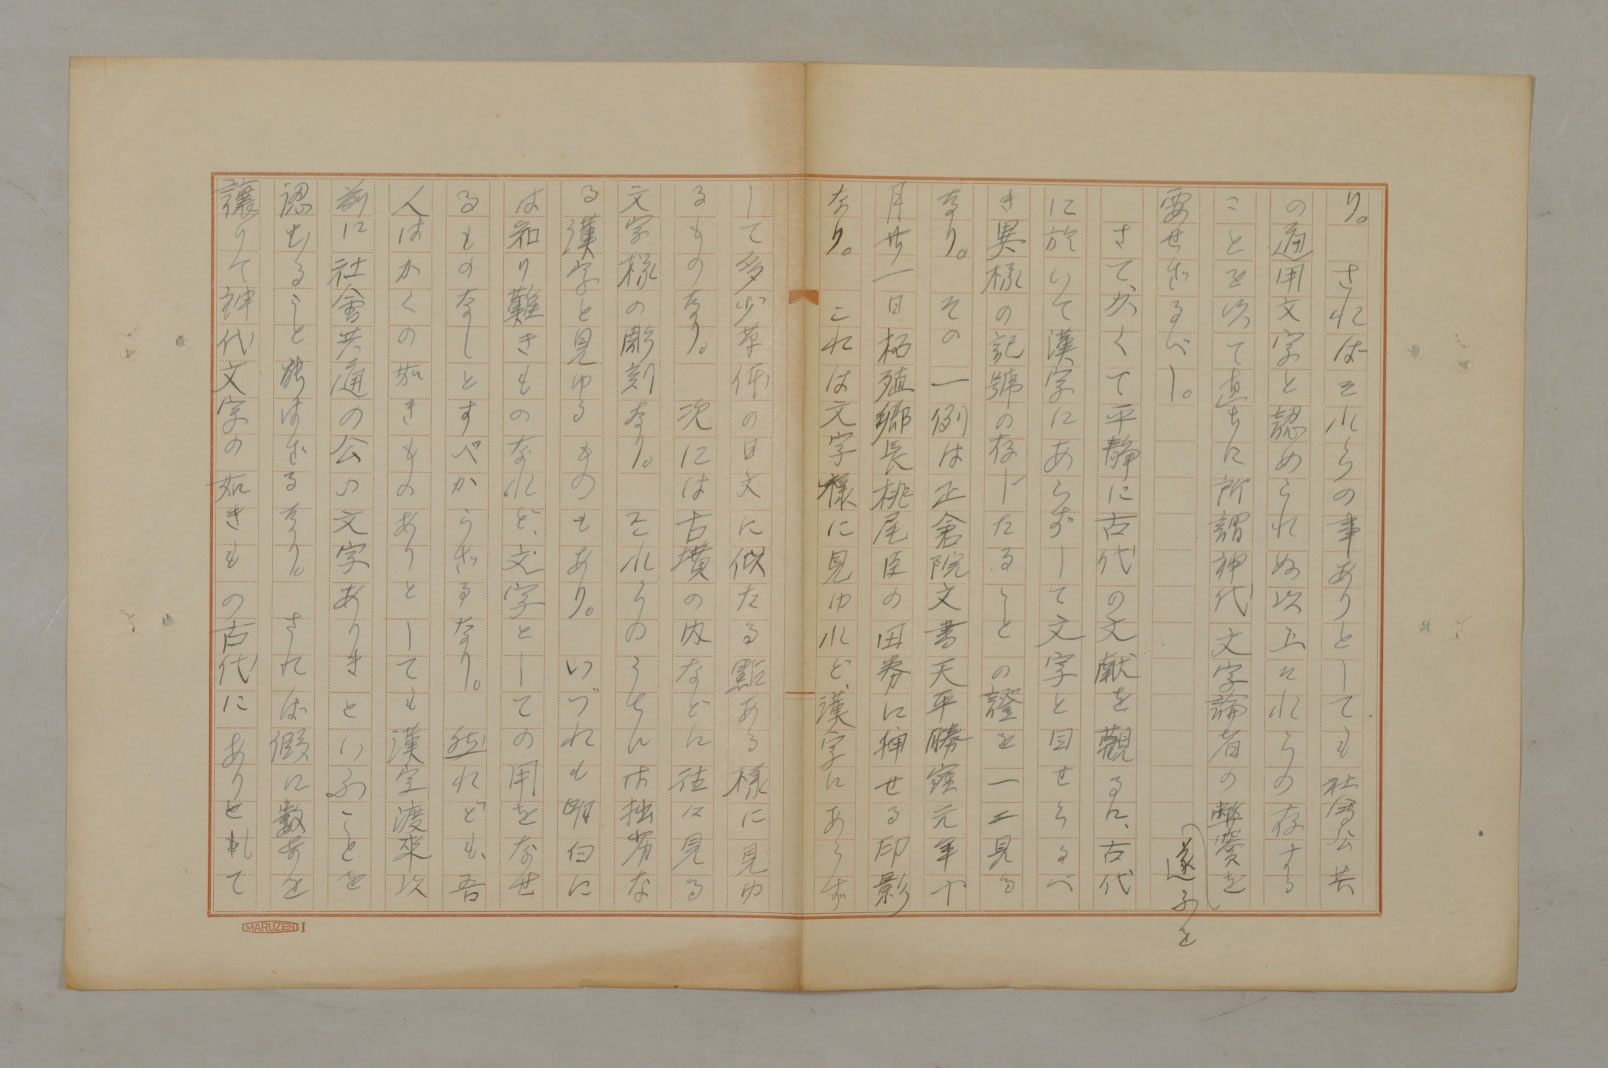 り。　さればそれらの事ありとしても社會公共
の通用文字と認められぬ以上それらの存する
ことを以て直ちに所謂神代文字論者の辯護を
遂ふを
要せざるべし。
　さて、かくて平静に古代の文献を觀るに、古代
に於いて漢字にあらずして文字と目せらるべ
き異様の記號の存したることの證を一二見る
なり。　その一例は正倉院文書天平勝寳元年十
一月廿一日柘殖郷長桃尾臣の田券に押せる印影
なり。　これは文字様に見ゆれど、漢字にあらず
して多少草体の日文に似たる點ある様に見ゆ
るものなり。　次には古墳の内などに往々見る
文字様の彫刻なり。　それらのうちに
る漢字と見ゆるものもあり。　いづれも明白に
は知り難きものなれど、文字としての用をなせ
るものなしとすべからざるなり。　然れども、吾
人はかくの如きものありとしても漢字渡來以
前に社會共通の公の文字ありきといふことを
認むること能はざるなり。　されば假に數歩を
讓りて神代文字の如きもの古代にありとして
MARUZEN I